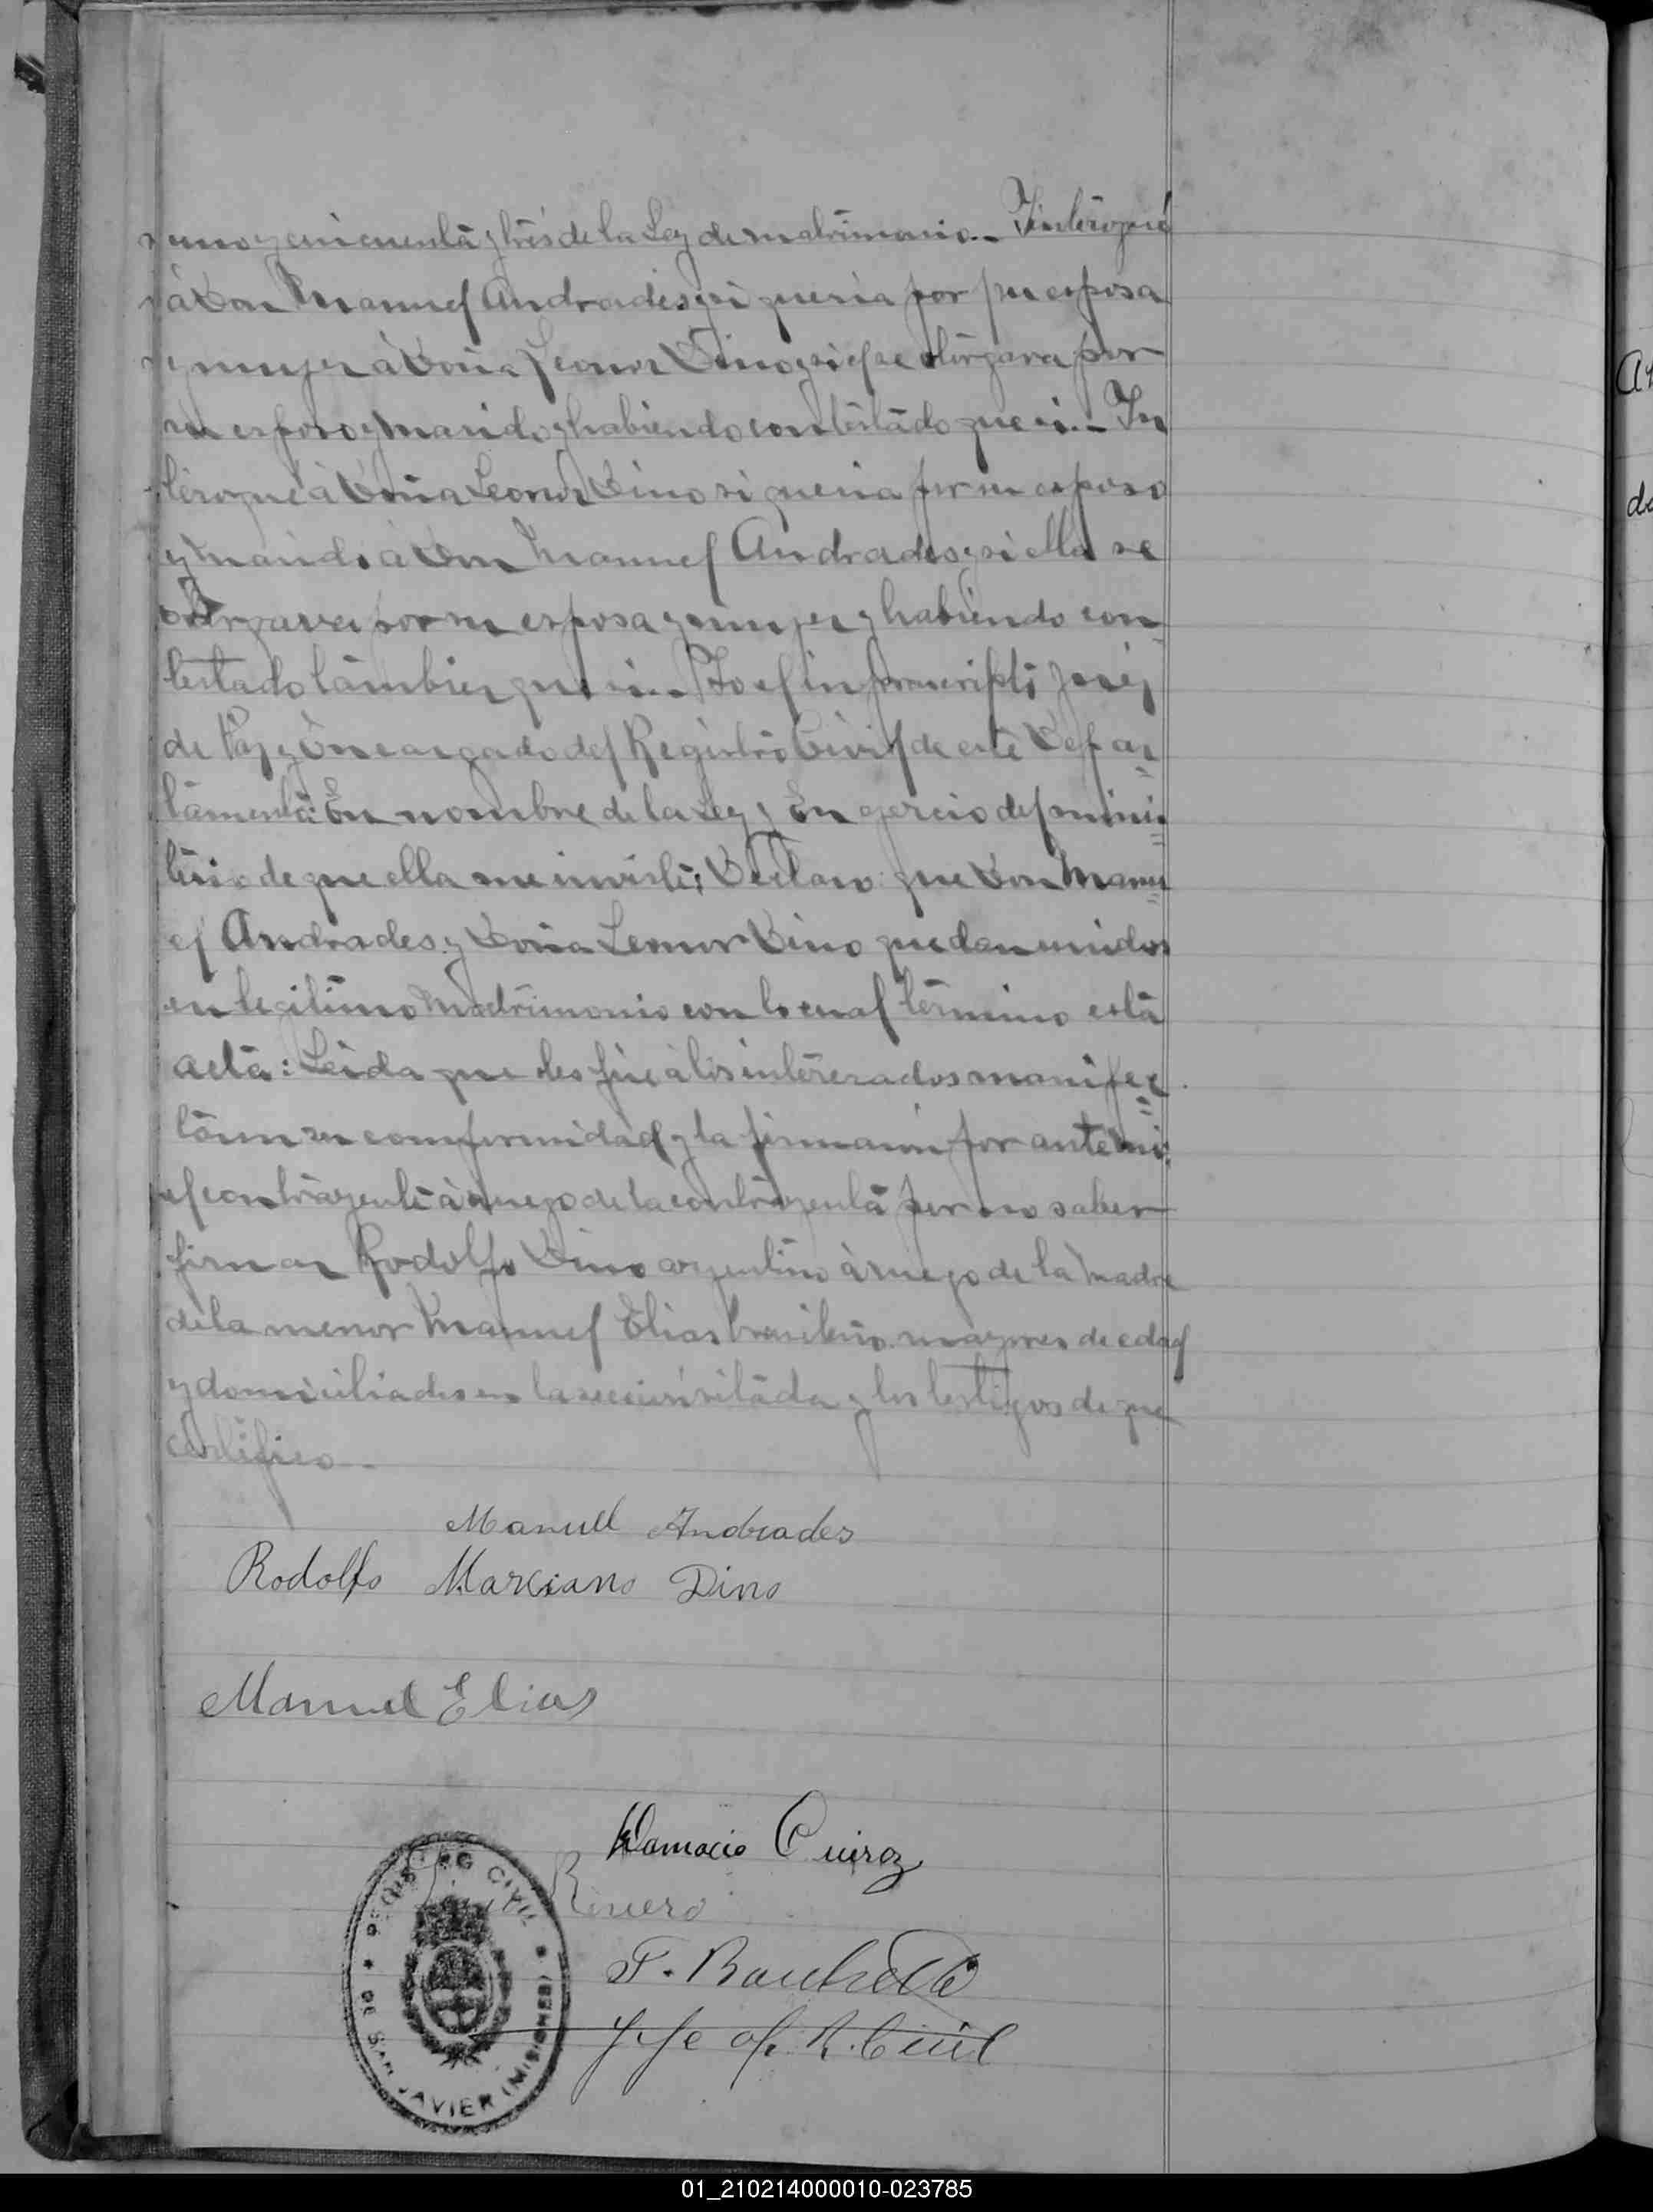 uno y cincuenta y trés de la Ley de matrimonio.- Interogué
á Don Manuel Andrades, si queria por su esposa
y mujer á Doña Leonor Dino y si el se otorgava por
su esposo y marido y habiendo contestado que si.- In
terogué á Doña Leonor Dino si queria por su esposo
y marido á Don Manuel Andrades y si ella se
otorgava por su esposa y mujer y habiendo con
testado tambien que si.- Yo el infrascripto Juez
de Paz y Encargado del Registro Civil de este Depar
tamento: En nombre de la Ley y En ejercio del minis
terio de que ella me inviste; Declaro: que Don Manu
el Andrades y Doña Leonor Dino quedan unidos
en legitimo Matrimonio con lo cual término esta
acta: Leida que les fué á los interesados manifes
taron su comformidad y la firmaron por ante mi:
el contrayente á ruego de la contrayenta por no saber
firmar Rodolfo Dino argentino á ruego de la Madre
de la menor Manuel Elias brasileño mayores de edad
y domiciliados en la seccion citada y los testigos de que
certifico.-
Manuel Andrades
Rodolfo Marciano Dino
Manuel Elias
Damacio Quiroz
Rivero
Jefe of. R. Civil
REGISTRO CIVIL
DE SAN JAVIER (MISIONES)
A
de
01_210214000010-023785